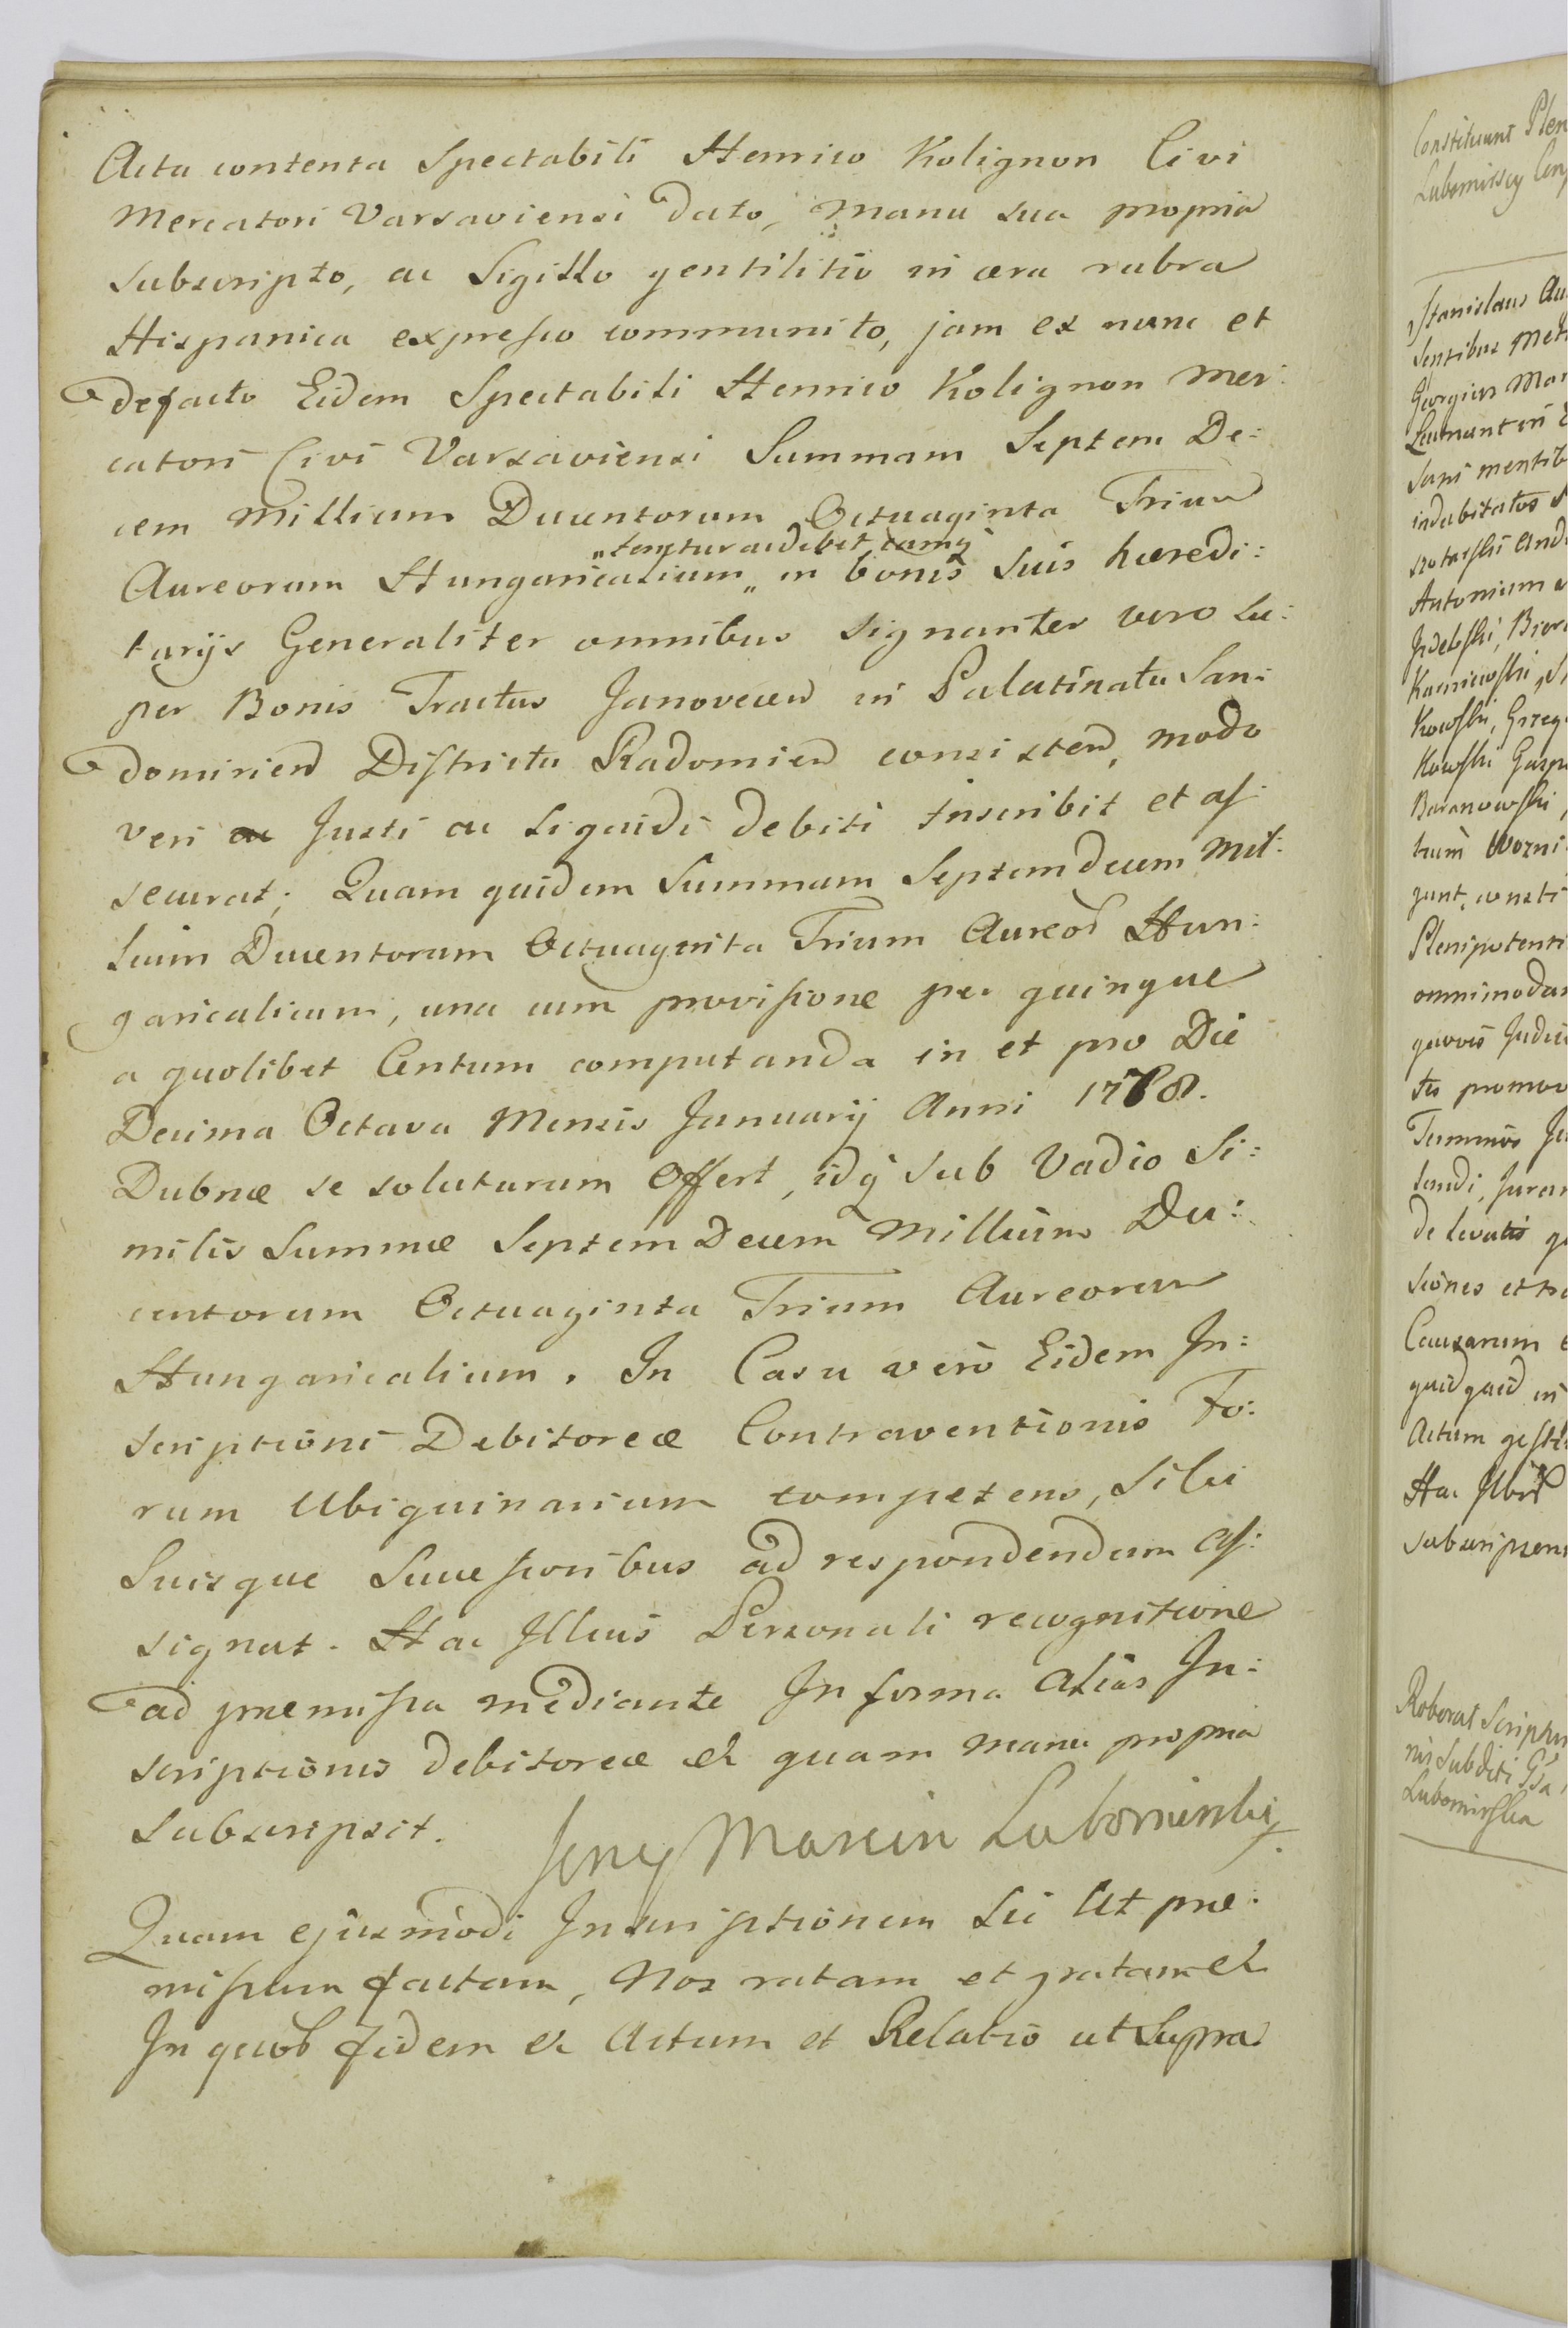 Acta contenta Spectabili Henrico Kolignon Civi
Mercatori Varsaviensi dato, manu sua propria
subscripto, ac Sigillo gentilitio in cera rubra
Hispanica expresso communito, jam ex nunc et
defacto Eidem Spectabili Henrico Kolignon Mer:
catori Civi Varsaviensi Summam Septem De:
cem Millium Ducentorum Octuaginta Trium
„tenetur ac debet eamq
Aureorum Hungaricalium „ in bonis suis hæredi:
tarijs Generaliter omnibus signanter vero su:
per Bonis Tractus Janovecen in Palatinatu San:
domirien Districtu Radomien consisten, modo
veri Justi ac liquidi debiti inscribit et as:
securat; Quam quidem Summam Septemdecem Mil:
lium Ducentorum Octuaginta Trium Aureor Hun:
garicalium, una cum provisione per quinque
a quolibet Centum computanda in et pro Die
Decima Octava Mensis Januarij Anni 1768.
Dubnæ se soluturum Offert, idq sub Vadio Si:
milis Summæ Septem Decem Millium Du:
centorum Octuaginta Trium Aureorum
Hungaricalium. In Casu vero Eidem In:
scriptioni Debitoreæ Contraventionis Fo:
rum Ubiquinarium competens, Sibi
Suisque Successoribus ad respondendum As:
signat. Hac Illius Personali recognitione
ad præmissa mediante In forma alias In:
scriptionis debitoreæ et quam manu propria
subscripsit.
Jerzy Marcin Lubomirski
Quam ejusmodi Inscriptionem sic Ut præ:
missum factam, Nos ratam et gratam et
In quor fidem et Actum et Relatio ut Supra
Constituunt
Lubomirscy
Stanislaus
sentibus
Georgius
sani
indubitatos
Antonium
Baranowski
Plenipotenti
omnimodam
Causarum
quidquid in
Actum
Roborat Scriptum
nis Subditi
Lubomirska